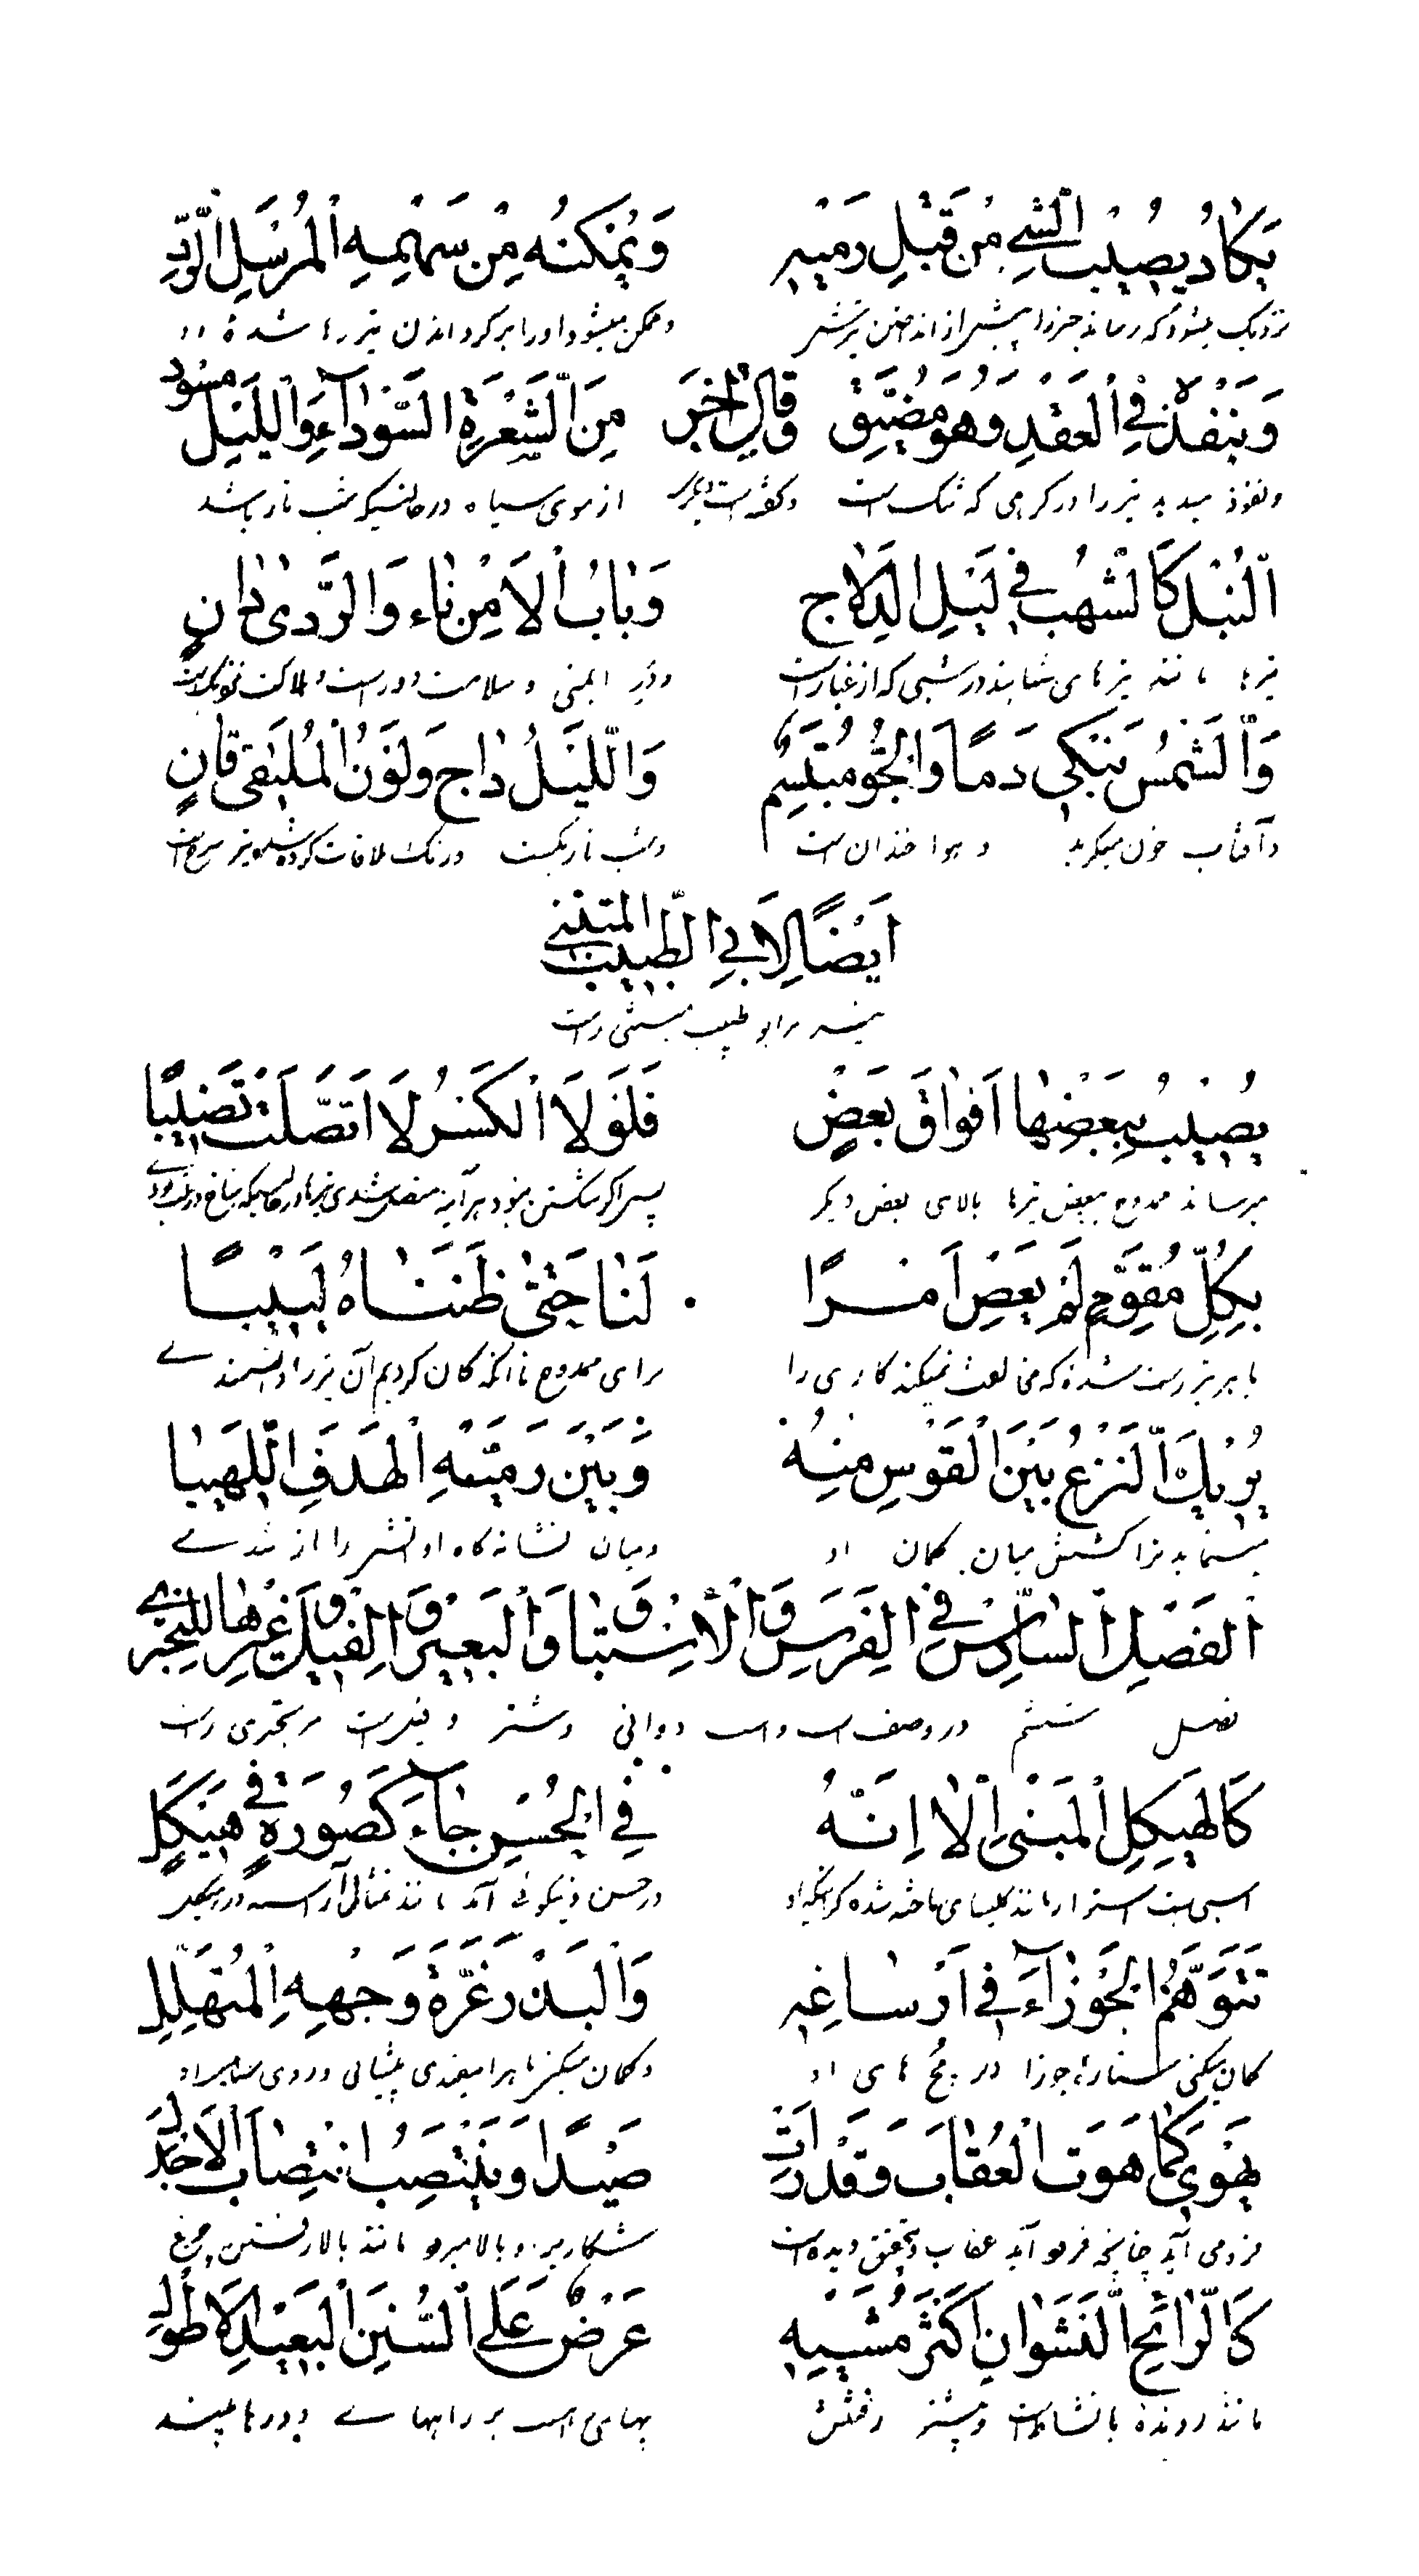 يَكَادُ يُصِيْبُ الشَّيْءَ مِنْ قَبْلِ رَمْيِهِ وَيُمْكِنُهُ مِنْ سَهْمِهِ الْمُرْسَلِ الرَّدُّ
نزدیک میشود که رساند چیز را پیش از انداختن تیرش و ممکن میشود او را برگرداندن تیر رها شده
وَيَنْفُذُ فِي الْعَقْدِ وَهُوَ مُضَيَّقٌ وقال اخر مِنَ الشَّعْرَةِ السَّوْدَآءِ وَاللَّيْلُ مسود
و نفوذ میدهد تیر را در گرهی که تنک است و گفته است دیگری از موی سیاه در حالتیکه شب تار باشد
اَلنَّبْلُ كَالشُّهْبِ فِي لَيْلِ الْعَجَاجِ وَبَابُ الْاَمْنِ نَاءٍ وَالرَّدٰى دَانٍ
تیرها مانند تیرهای شهابند در شبی که از غبار است و در ایمنی و سلامت دور است و هلاکت نزدیک است
وَالشَّمْسُ تَبْكِي دَمًا وَالْجَوُّ مُبْتَسِمٌ وَاللَّيْلُ دَاجٍ وَلَوْنُ الْمُلْتَقٰى قَانٍ
و آفتاب خون میگرید و هوا خندان است و شب تاریکست و رنگ ملاقات کرده
اَيْضًا لِاَبِي الطَّيِّبِ الْمُتَنَبِّي
نیز مر ابو طیب متنبی راست
يُصِيْبُ بِبَعْضِهَا اَفْوَاقَ بَعْضٍ فَلَوْلَا الْكَسْرُ لَاتَّصَلَتْ قَضِيْبًا
میرساند ممدوح ببعض تیرها بالای بعض دیگر پس اگر شکستن نبود هرآینه متصل شدی تیرها در حالتیکه شاخ درخت بودی
بِكُلِّ مُقَوَّمٍ لَمْ يَعْصِ اَمْرًا لَنَا حَتّٰى ظَنَنَّاهُ لَبِيْبًا
با هر تیر راست شده که مخالفت نمیکند کاری را برای ممدوح تا آنکه گمان کردیم آن تیر را دانشمندی
يُرِيْكَ النَّزْعُ بَيْنَ الْقَوْسِ مِنْهُ وَبَيْنَ رَمِيِّهِ الْهَدَفِ اللَّهِيْبَا
مینماید ترا کشش میان کمان او و میان نشانه گاه او آتش را از تندی
اَلْفَصْلُ السَّادِسُ فِي الْفَرَسِ وَالْاِسْتِبَاقِ وَالْبَعِيْرِ وَالْفِيْلِ وَغَيْرِهَا لِلْبُحْتُرِي
فصل ششم در وصف اسب و اسب دوانی و شتر و فیل است مر بحتری راست
كَالْهَيْكَلِ الْمَبْنِيِّ اِلَّا اِنَّهُ فِي الْحُسْنِ جَآءَ كَصُوْرَةٍ فِي هَيْكَلٍ
در حسن و نیکوئی آمد مانند تمثالی آراسته در هیکل
تَتَوَهَّمُ الْجَوْزَآءَ فِي اَرْسَاغِهِ وَالْبَدْرَ غُرَّةَ وَجْهِهِ الْمُتَهَلِّلِ
گمان میکنی ستاره جوزا در مچ های او و گمان میکنی ماه را سفیدی پیشانی و روی
يَهْوِي كَمَا هَوَتِ الْعُقَابُ وَقَدْ رَاَتْ صَيْدًا وَيَنْتَصِبُ انْتِصَابَ الْاَجْدَلِ
فرو می آید چنانچه فرو آید عقاب و بتحقیق دیده است شکاری و بالا میرود مانند بالا رفتن چرغ
كَالرَّائِحِ النَّشْوَانِ اَكْثَرُ مَشْيِهِ عَرْضٌ عَلَى السَّنَنِ الْبَعِيْدِ الْاَطْوَلِ
مانند رونده با نشاط است و بیشتر رفتنش پهنای است بر راههای دور